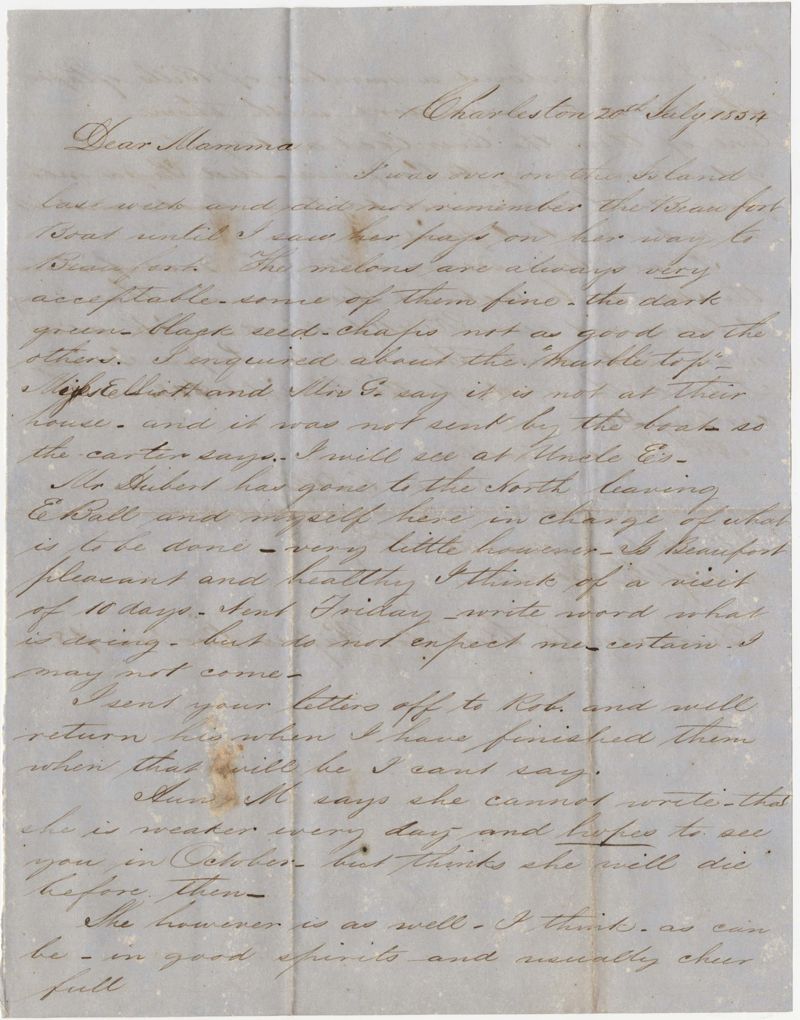 Charleston 20th July 1854
Dear Mamma
I was over on the Island
last week and did not remember the Beaufort
Boat until I saw her pass on her way to
Beaufort. The melons are always very
acceptable - some of them fine - the dark
green - black seed - chaps not as good as the
others. I enquired about the "marble top" -
Miss Elliott and Mrs G. say it is not at their
house - and it was not sent by the boat so
the carter says. I will see at Uncle E's -
Mr Hubert has gone to the North leaving
E Ball and myself here in charge of what
is to be done - very little however - Is Beaufort
pleasant and healthy I think of a visit
of 10 days - Next Friday - write word what
is doing - but do not expect me - certain - I
may not come -
I sent your letters off to Rob. and will
return his when I have finished them
when that will be I cant say.
Aunt M says she cannot write - that
she is weaker every day and hopes to see
you in October - but thinks she will die
before then -
She however is as well - I think - as can
be - in good spirits and usually cheer
full